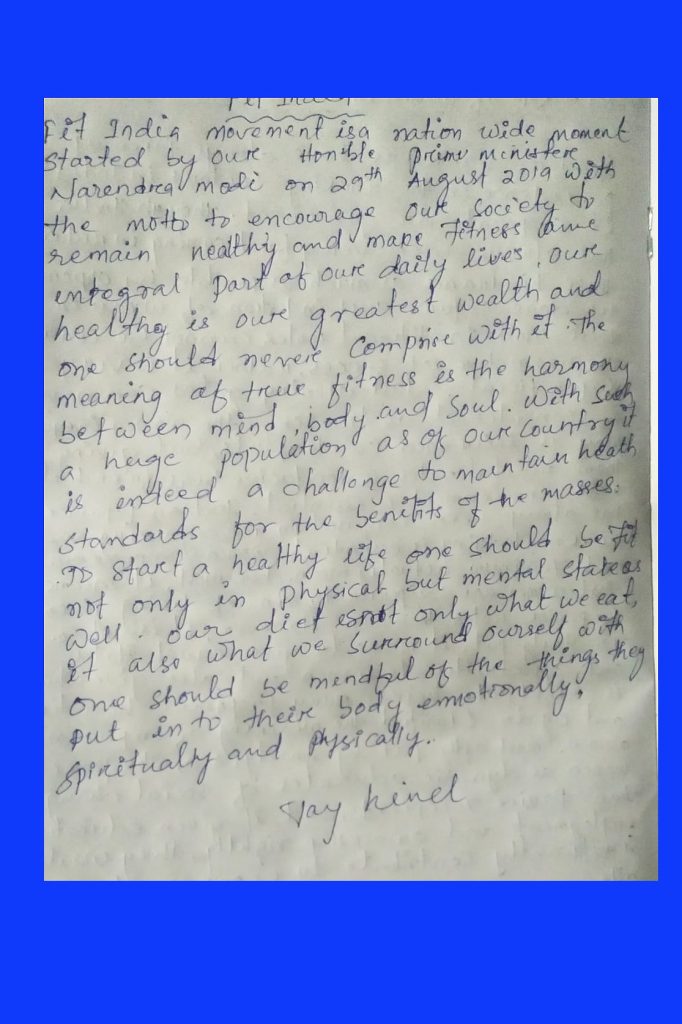 Fit India
Fit India movement is a nation wide moment
Started by oure Hon'ble prime ministere
Narendrea modi on 29th August 2019 With
the motto to encourage oure Society to
remain healthy and make Fitness ame
integral part of oure daily lives, oure
healthg is oure greatest wealth and
one should nevere Comprise with it. The
meaning of true fitness is the harmony
between mind, body and Soul. With Such
a huge population as of oure country it
is indeed a challenge to maintain heath
standards for the benifits of the masses.
To start a healthy life one should be fit
not only in physical but mental state as
well. our diet isnot only what we eat,
it also what we Surround ourself with
one should be mindful of the things they
put in to their body emotionally,
spiritually and physically.
Jay hind